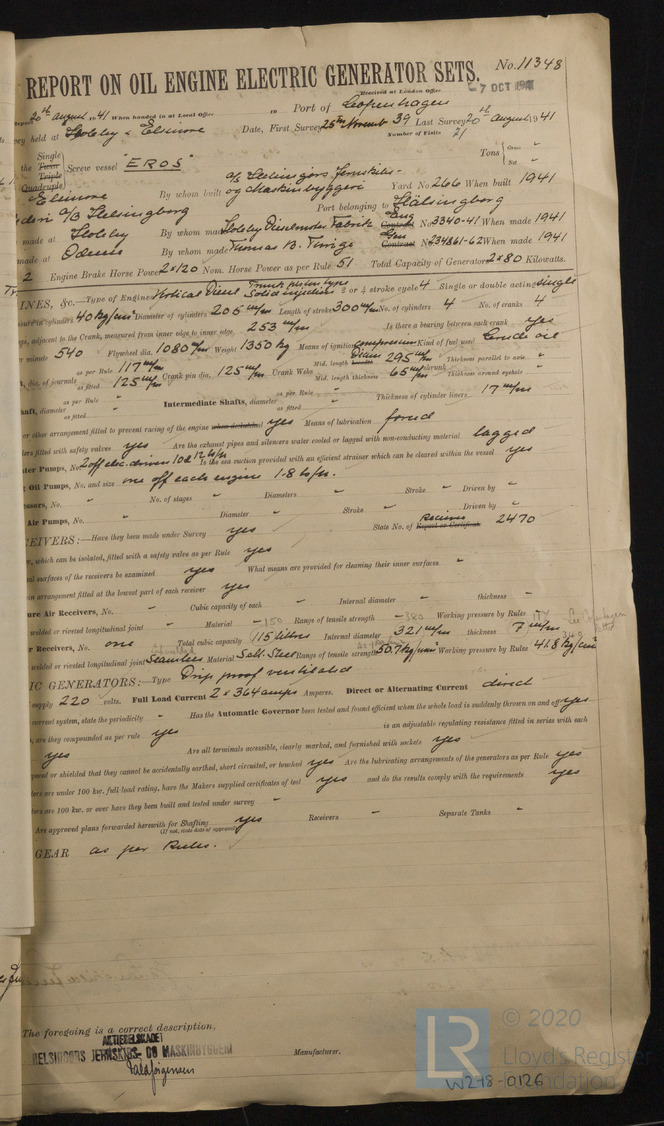 No. 11348
REPORT ON OIL ENGINE ELECTRIC GENERATOR SETS.
Received at London Office
7 OCT 1941
20th August 1941 When handed in at Local Office Port of Copenhagen
held at Holeby & Elsinore Date, First Survey 25th Novemb 39 Last Survey 20th August 1941
Number of Visits 21
Single
Twin
Triple
Quadruple
the Screw vessel "EROS" Tons Gross "
Net "
Elsinore By whom built A/S Helsingørs Jernskibs- og Maskinbyggeri Yard No. 266 When built 1941
A/B Helsingborg Port belonging to Hälsingborg
made at Holeby By whom made Holeby Dieselmotor Fabrik Eng Contract No 3340-41 When made 1941
made at Odense By whom made Thomas B. Thrige Gen Contract No 234861-62 When made 1941
2 Engine Brake Horse Power 2×120 Nom. Horse Power as per Rule 51 Total Capacity of Generators 2×80 Kilowatts.
INES, &c.—Type of Engine Vertical Diesel Trunk piston type Solid injection 2 or 4 stroke cycle 4 Single or double acting single
in cylinders 40 kg/cm² Diameter of cylinders 205 m/m Length of stroke 300 m/m No. of cylinders 4 No. of cranks 4
adjacent to the Crank, measured from inner edge to inner edge 253 m/m Is there a bearing between each crank yes
minute 540 Flywheel dia. 1080 m/m Weight 1350 kg Means of ignition compression Kind of fuel used Crude oil
dia. of journals as per Rule 117 m/m as fitted 125 m/m Crank pin dia. 125 m/m Crank Webs Mid. length breadth 295 m/m Mid. length thickness 65 m/m shrunk Thickness parallel to axis " Thickness around eyehole "
haft, diameter as per Rule " as fitted " Intermediate Shafts, diameter as per Rule " as fitted " Thickness of cylinder liners 17 m/m
or other arrangement fitted to prevent racing of the engine when declutched yes Means of lubrication forced
fitted with safety valves yes Are the exhaust pipes and silencers water cooled or lagged with non-conducting material lagged
Pumps, No. 2 off elec. driven Is the sea suction provided with an efficient strainer which can be cleared within the vessel yes
Oil Pumps, No. and size one off each engine 1·8 ts/h.
No. " No. of stages " Diameters " Stroke " Driven by "
Air Pumps, No. " Diameter " Stroke " Driven by "
EIVERS:—Have they been made under Survey yes State No. of Report or Certificate Receiver 2470
which can be isolated, fitted with a safety valve as per Rule yes
surfaces of the receivers be examined yes What means are provided for cleaning their inner surfaces "
arrangement fitted at the lowest part of each receiver yes
ure Air Receivers, No. " Cubic capacity of each " Internal diameter " thickness "
welded or riveted longitudinal joint " Material " Range of tensile strength " Working pressure by Rules "
Receivers, No. one Total cubic capacity 115 litres Internal diameter 321 m/m thickness 7 m/m
welded or riveted longitudinal joint Seamless Material S.M. Steel Range of tensile strength 50.7 kg/mm² Working pressure by Rules 41.8 kg/cm²
IC GENERATORS:—Type Drip proof ventilated
supply 220 volts. Full Load Current 2 × 364 amps Amperes. Direct or Alternating Current direct
current system, state the periodicity " Has the Automatic Governor been tested and found efficient when the whole load is suddenly thrown on and off yes
are they compounded as per rule yes is an adjustable regulating resistance fitted in series with each
yes Are all terminals accessible, clearly marked, and furnished with sockets yes
or shielded that they cannot be accidentally earthed, short circuited, or touched yes Are the lubricating arrangements of the generators as per Rule yes
are under 100 kw. full load rating, have the Makers supplied certificates of test yes and do the results comply with the requirements yes
are 100 kw. or over have they been built and tested under survey "
Are approved plans forwarded herewith for Shafting yes Receivers " Separate Tanks "
(If not, state date of approval)
GEAR as per Rules.
The foregoing is a correct description,
AKTIESELSKABET
HELSINGØRS JERNSKIBS- OG MASKINBYGGERI
Manufacturer.
© 2020
LR
Lloyd's Register
Foundation
W248-0126